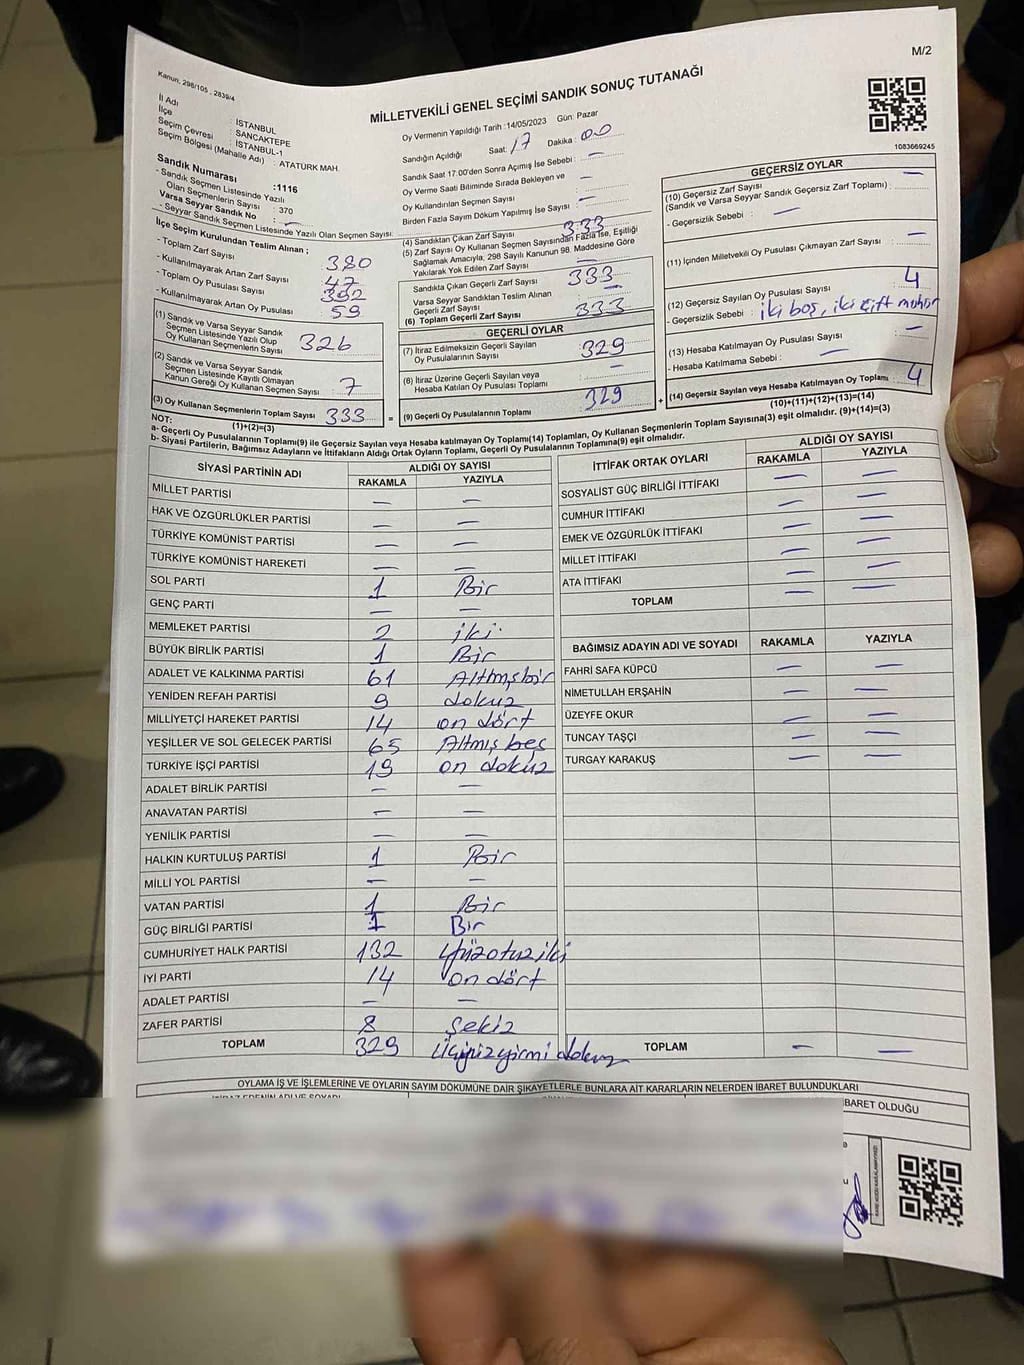 M/2
Kanun, 298/105 . 2839/4
MİLLETVEKİLİ GENEL SEÇİMİ SANDIK SONUÇ TUTANAĞI
1083669245
İl Adı : İSTANBUL
İlçe : SANCAKTEPE
Seçim Çevresi : İSTANBUL-1
Seçim Bölgesi (Mahalle Adı) : ATATÜRK MAH.
Sandık Numarası :1116
- Sandık Seçmen Listesinde Yazılı
Olan Seçmenlerin Sayısı : 370
Varsa Seyyar Sandık No : —
- Seyyar Sandık Seçmen Listesinde Yazılı Olan Seçmen Sayısı:
Oy Vermenin Yapıldığı Tarih :14/05/2023 Gün: Pazar
Sandığın Açıldığı Saat: 17 Dakika : 00
Sandık Saat 17:00'den Sonra Açımış İse Sebebi : —
Oy Verme Saati Bitiminde Sırada Bekleyen ve
Oy Kullandırılan Seçmen Sayısı : —
Birden Fazla Sayım Döküm Yapılmış İse Sayısı : —
İlçe Seçim Kurulundan Teslim Alınan ;
- Toplam Zarf Sayısı : 380
- Kullanılmayarak Artan Zarf Sayısı : 47
- Toplam Oy Pusulası Sayısı : 392
- Kullanılmayarak Artan Oy Pusulası : 59
(1) Sandık ve Varsa Seyyar Sandık
Seçmen Listesinde Yazılı Olup
Oy Kullanan Seçmenlerin Sayısı : 326
(2) Sandık ve Varsa Seyyar Sandık
Seçmen Listesinde Kayıtlı Olmayan
Kanun Gereği Oy Kullanan Seçmen Sayısı : 7
(3) Oy Kullanan Seçmenlerin Toplam Sayısı 333
(1)+(2)=(3)
(4) Sandıktan Çıkan Zarf Sayısı : 333
(5) Zarf Sayısı Oy Kullanan Seçmen Sayısından Fazla İse, Eşitliği
Sağlamak Amacıyla, 298 Sayılı Kanunun 98. Maddesine Göre
Yakılarak Yok Edilen Zarf Sayısı : —
Sandıkta Çıkan Geçerli Zarf Sayısı : 333
Varsa Seyyar Sandıktan Teslim Alınan
Geçerli Zarf Sayısı : —
(6) Toplam Geçerli Zarf Sayısı : 333
GEÇERLİ OYLAR
(7) İtiraz Edilmeksizin Geçerli Sayılan
Oy Pusulalarının Sayısı : 329
(8) İtiraz Üzerine Geçerli Sayılan veya
Hesaba Katılan Oy Pusulası Toplamı : —
= (9) Geçerli Oy Pusulalarının Toplamı : 329
GEÇERSİZ OYLAR
(10) Geçersiz Zarf Sayısı —
(Sandık ve Varsa Seyyar Sandık Geçersiz Zarf Toplamı) :
- Geçersizlik Sebebi : —
(11) İçinden Milletvekili Oy Pusulası Çıkmayan Zarf Sayısı : —
(12) Geçersiz Sayılan Oy Pusulası Sayısı : 4
- Geçersizlik Sebebi : iki boş, iki çift mühür
(13) Hesaba Katılmayan Oy Pusulası Sayısı : —
- Hesaba Katılmama Sebebi : —
+ (14) Geçersiz Sayılan veya Hesaba Katılmayan Oy Toplamı : 4
(10)+(11)+(12)+(13)=(14)
NOT:
a- Geçerli Oy Pusulalarının Toplamı(9) ile Geçersiz Sayılan veya Hesaba katılmayan Oy Toplamı(14) Toplamları, Oy Kullanan Seçmenlerin Toplam Sayısına(3) eşit olmalıdır. (9)+(14)=(3)
b- Siyasi Partilerin, Bağımsız Adayların ve İttifakların Aldığı Ortak Oyların Toplamı, Geçerli Oy Pusulalarının Toplamına(9) eşit olmalıdır.
SİYASİ PARTİNİN ADI ALDIĞI OY SAYISI
RAKAMLA YAZIYLA
MİLLET PARTİSİ — —
HAK VE ÖZGÜRLÜKLER PARTİSİ — —
TÜRKİYE KOMÜNİST PARTİSİ — —
TÜRKİYE KOMÜNİST HAREKETİ — —
SOL PARTİ 1 Bir
GENÇ PARTİ — —
MEMLEKET PARTİSİ 2 iki
BÜYÜK BİRLİK PARTİSİ 1 Bir
ADALET VE KALKINMA PARTİSİ 61 Altmışbir
YENİDEN REFAH PARTİSİ 9 dokuz
MİLLİYETÇİ HAREKET PARTİSİ 14 on dört
YEŞİLLER VE SOL GELECEK PARTİSİ 65 Altmış beş
TÜRKİYE İŞÇİ PARTİSİ 19 on dokuz
ADALET BİRLİK PARTİSİ — —
ANAVATAN PARTİSİ — —
YENİLİK PARTİSİ — —
HALKIN KURTULUŞ PARTİSİ 1 Bir
MİLLİ YOL PARTİSİ — —
VATAN PARTİSİ 1 Bir
GÜÇ BİRLİĞİ PARTİSİ 1 Bir
CUMHURİYET HALK PARTİSİ 132 Yüzotuziki
İYİ PARTİ 14 on dört
ADALET PARTİSİ — —
ZAFER PARTİSİ 8 Şekiz
TOPLAM 329 Üçyüzyirmi dokuz
İTTİFAK ORTAK OYLARI ALDIĞI OY SAYISI
RAKAMLA YAZIYLA
SOSYALİST GÜÇ BİRLİĞİ İTTİFAKI — —
CUMHUR İTTİFAKI — —
EMEK VE ÖZGÜRLÜK İTTİFAKI — —
MİLLET İTTİFAKI — —
ATA İTTİFAKI — —
TOPLAM — —
BAĞIMSIZ ADAYIN ADI VE SOYADI RAKAMLA YAZIYLA
FAHRİ SAFA KÜPCÜ — —
NİMETULLAH ERŞAHİN — —
ÜZEYFE OKUR — —
TUNCAY TAŞÇI — —
TURGAY KARAKUŞ — —
TOPLAM — —
OYLAMA İŞ VE İŞLEMLERİNE VE OYLARIN SAYIM DÖKÜMÜNE DAİR ŞİKAYETLERLE BUNLARA AİT KARARLARIN NELERDEN İBARET BULUNDUKLARI
İBARET OLDUĞU